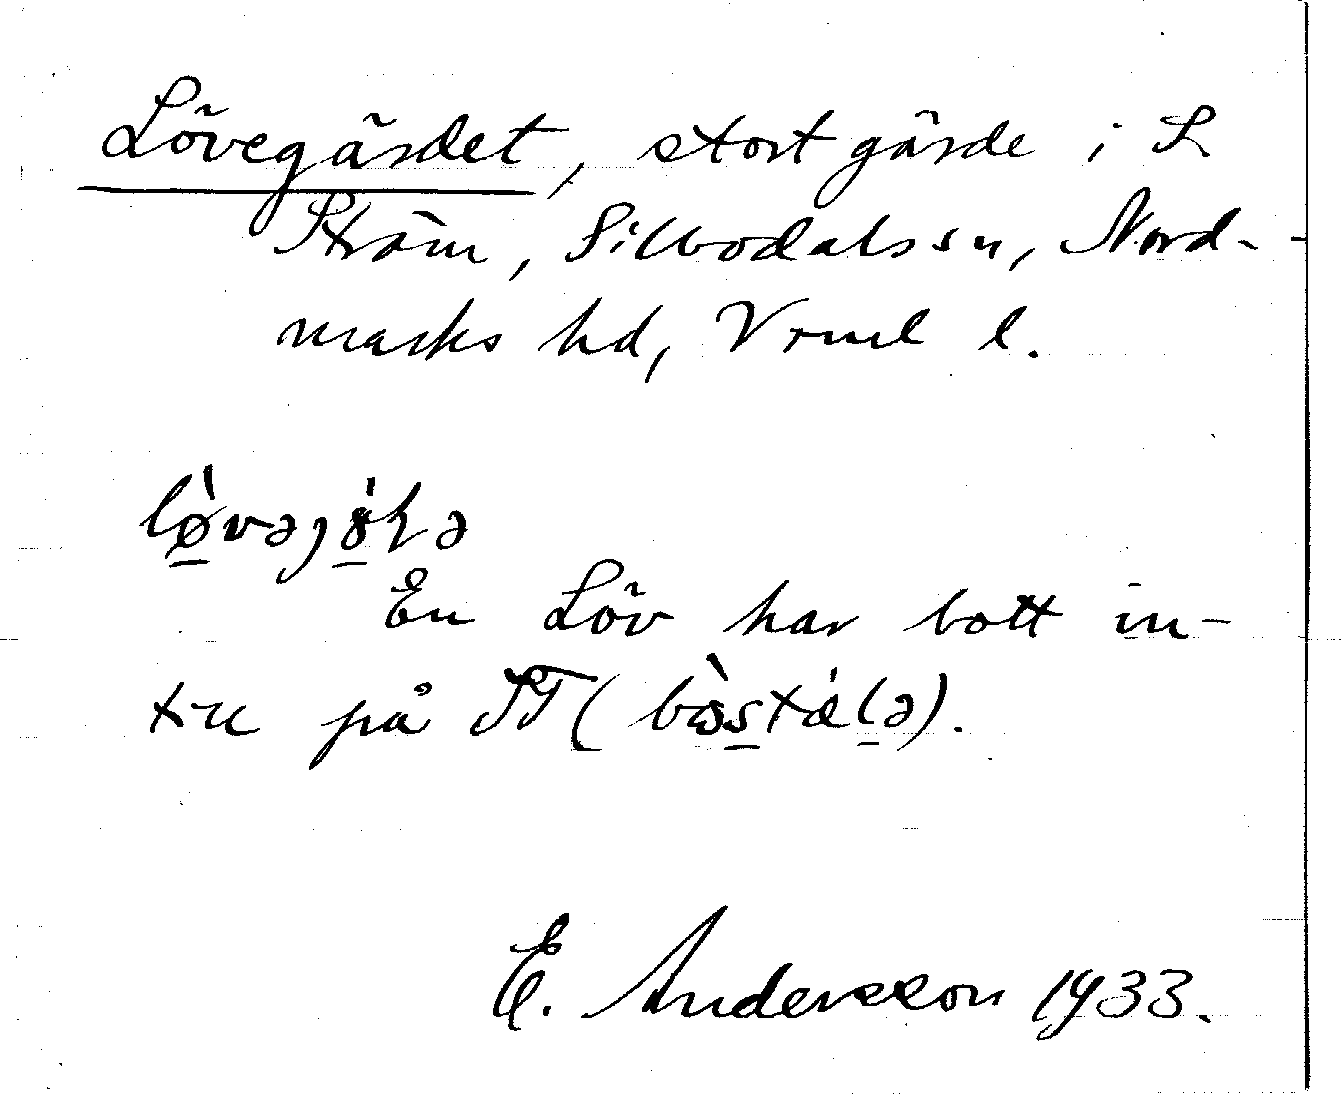 Lövegärdet, stort gärde i L
Ström, Silbodals sn, Nord-
marks hd, Vrml l.
En Löv har bott in-
till på ST (
E. Andersson 1933.